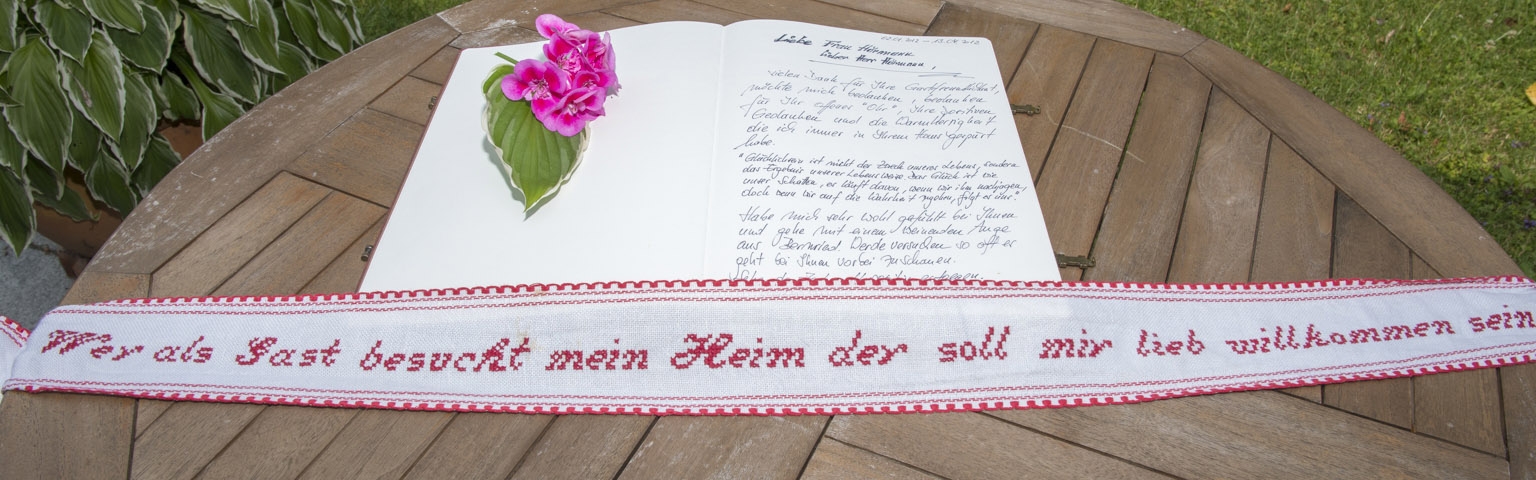 Liebe Frau Hörmann
lieber Herr Hörmann,
Vielen Dank für Ihre Gastfreundschaft,
möchte mich bedanken, bedanken
für Ihr offenes "Ohr", Ihre positiven
Gedanken und die Warmherzigkeit
die ich immer in Ihrem Haus gespürt
habe.
"Glücklichsein ist nicht der Zweck unseres Lebens, sondern
das Ergebnis unserer Lebensweise. Das Glück ist wie
unser Schatten, er läuft davon, wenn wir ihm nachjagen,
doch wenn wir auf die Wahrheit zugehen, folgt er uns."
Habe mich sehr wohl gefühlt bei Ihnen
und gehe mit einem weinenden Auge
aus Bernried. Werde versuchen so oft er
geht bei Ihnen vorbei zu schauen.
Wer als Gast besucht mein Heim der soll mir lieb willkommen sein